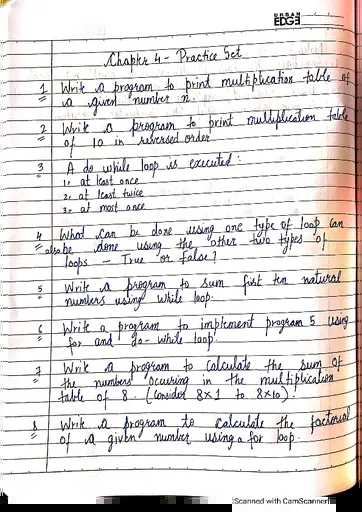 URBAN
EDGE
Chapter 4 - Practice Set
1 Write a program to print multiplication table of
a given number n.
2 Write a program to print multiplication table
of 10 in reversed order
3 A do while loop is executed:
1. at least once
2. at least twice
3. at most once
4 What can be done using one type of loop can
also be done using the other two types of
loops - True or False?
5 Write a program to sum first ten natural
numbers using while loop.
6 Write a program to implement program 5 using
for and do-while loop.
7 Write a program to calculate the sum of
the numbers occuring in the multiplication
table of 8. (consider 8x1 to 8x10).
8 Write a program to calculate the factorial
of a given number using a for loop.
Scanned with CamScanner